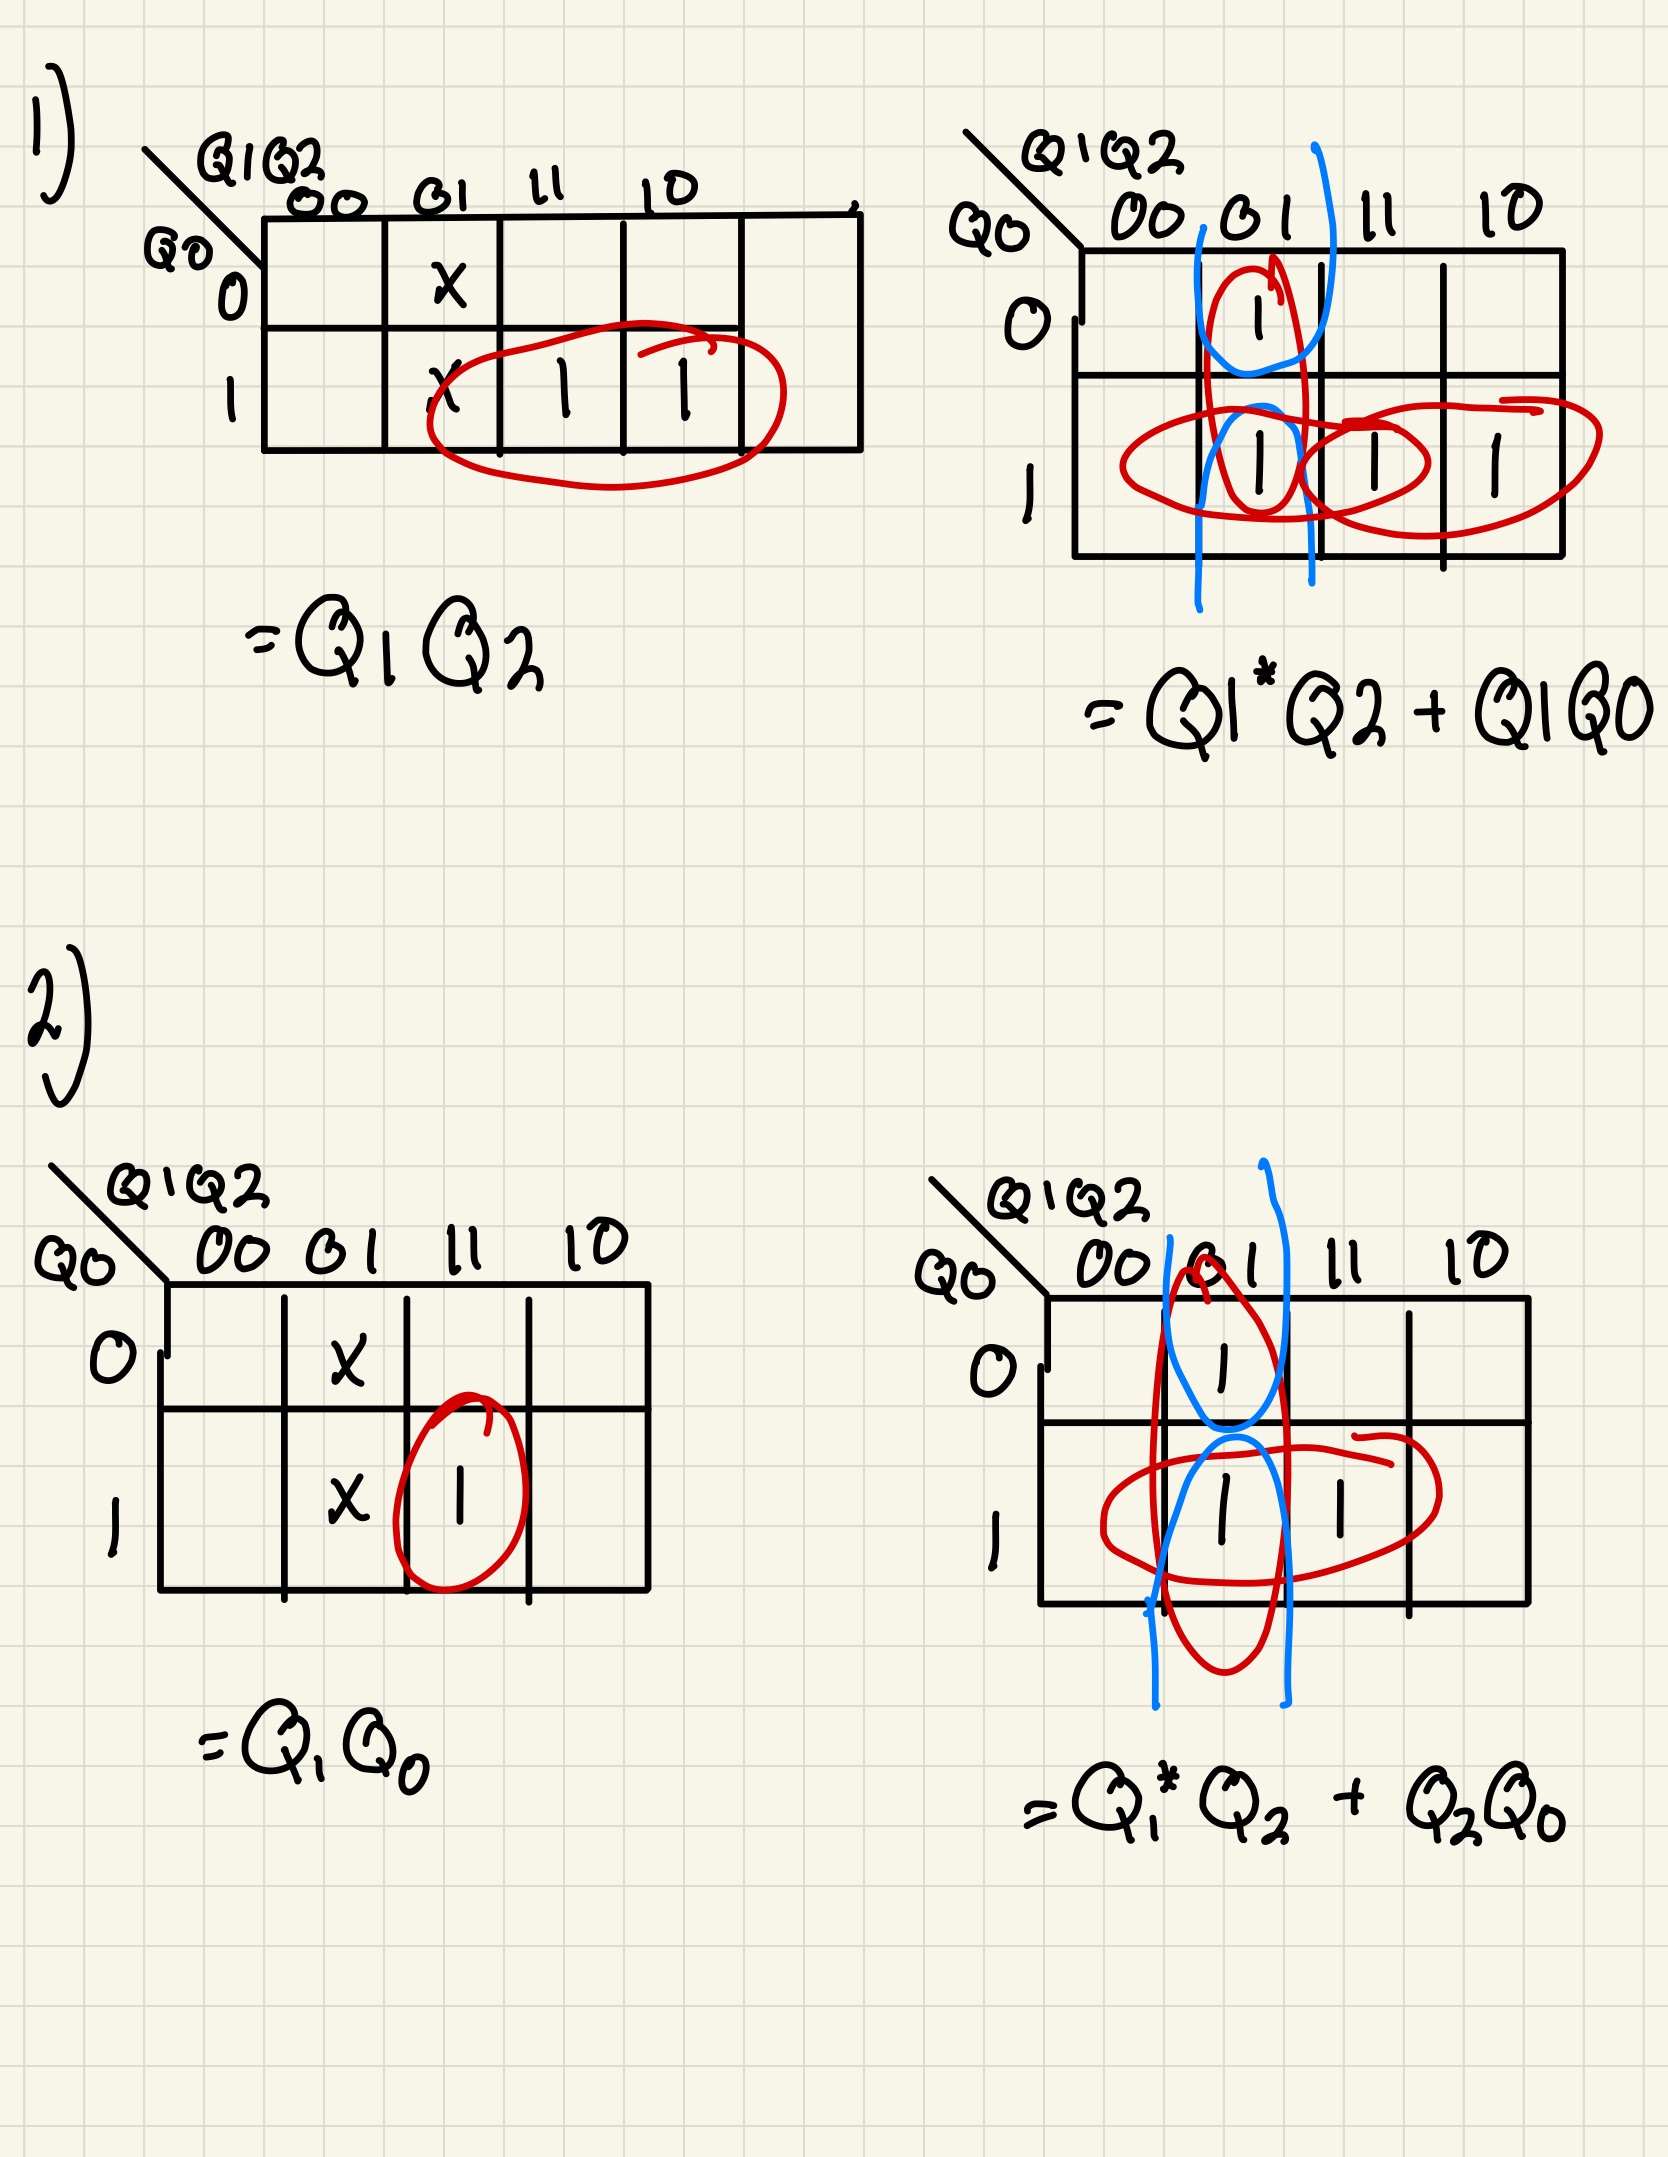 1)
Q1Q2
00 01 11 10
Q0
0 X
1 X 1 1
= Q1Q2
Q1Q2
00 01 11 10
Q0
0 1
1 1 1 1
= Q1*Q2 + Q1Q0
2)
Q1Q2
00 01 11 10
Q0
0 X
1 X 1
= Q1Q0
Q1Q2
00 01 11 10
Q0
0 1
1 1 1
= Q1*Q2 + Q2Q0